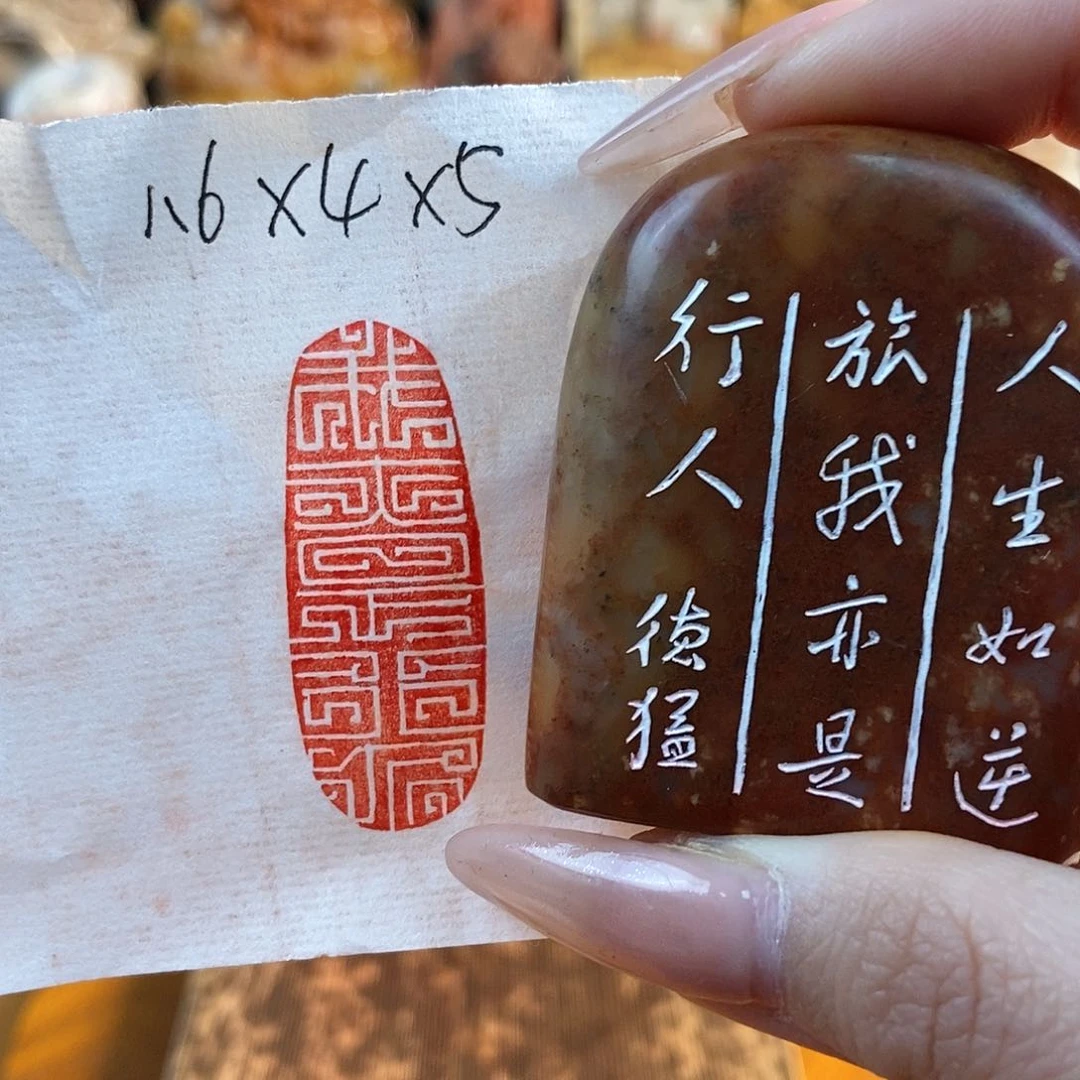 1.6×4×5
人生如逆
旅我亦是
行人 德猛